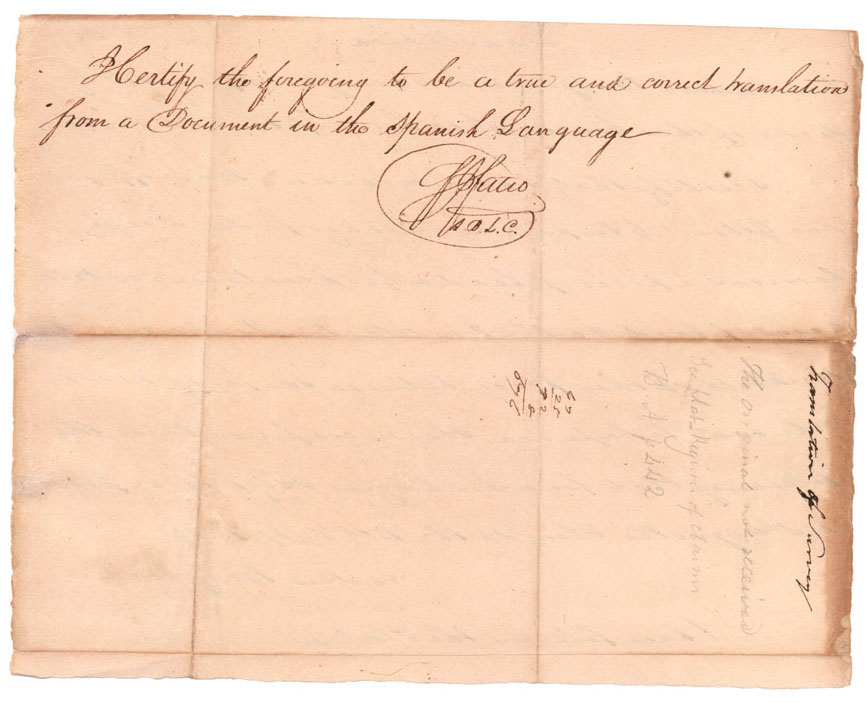 I Certify the foregoing to be a true and correct translation
from a Document in the Spanish Language
FJFatio
S.B.L.C.
Translation of Survey
The original not received
Register of claims